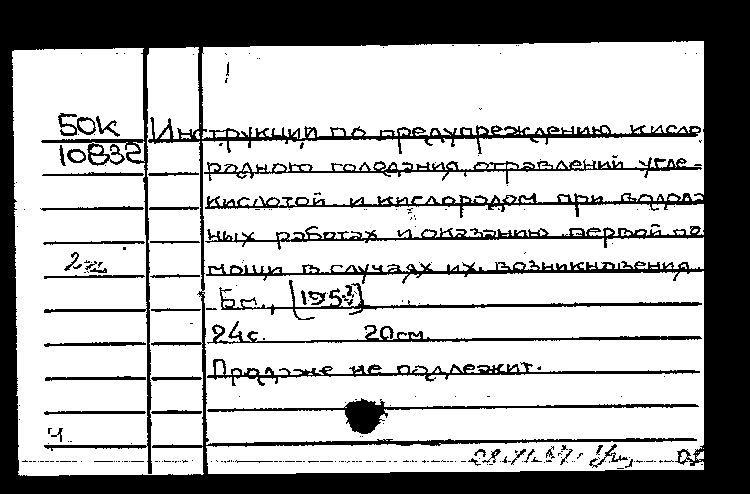 50к Инструкции по предупреждению кисло
10832 родного голодания, отравлений угле-
кислотой и кислородом при водолаз
ных работах и оказанию первой по
мощи в случаях их возникновения.
Б.м., [195?]
24с. 20см.
Продаже не подлежит.
Ч